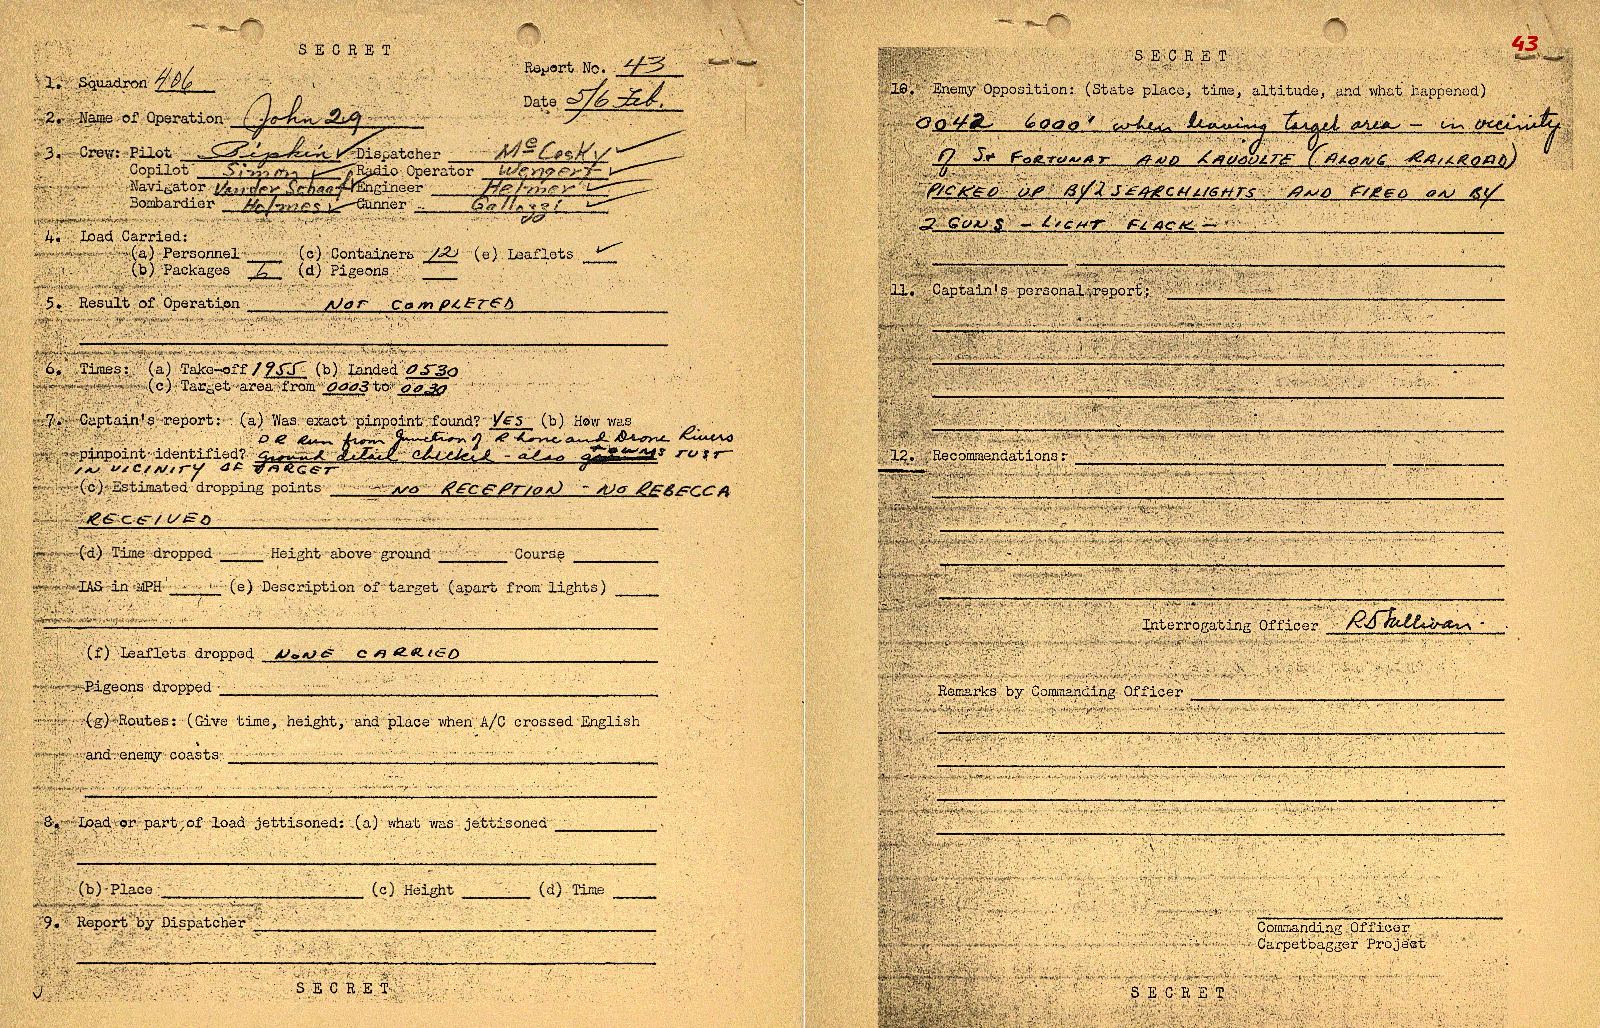 SECRET
Report No. 43
1. Squadron 406
Date 5/6 Feb.
2. Name of Operation John 29
3. Crew: Pilot Pipkin Dispatcher McCosky
Copilot Simon Radio Operator Wengert
Navigator Vander Schaaf Engineer Helmer
Bombardier Holmes Gunner
4. Load Carried:
(a) Personnel (c) Containers 12 (e) Leaflets ✓
(b) Packages 6 (d) Pigeons
5. Result of Operation NOT COMPLETED
6. Times: (a) Take-off 1955 (b) Landed 0530
(c) Target area from 0003 to 0030
7. Captain's report: (a) Was exact pinpoint found? YES (b) How was
DR Run from Junction of Rhone and Drone Rivers
pinpoint identified? ground detail checked - also towns JUST
IN VICINITY OF TARGET
(c) Estimated dropping points NO RECEPTION - NO REBECCA
RECEIVED
(d) Time dropped Height above ground Course
IAS in MPH (e) Description of target (apart from lights)
(f) Leaflets dropped NONE CARRIED
Pigeons dropped
(g) Routes: (Give time, height, and place when A/C crossed English
and enemy coasts
8. Load or part of load jettisoned: (a) what was jettisoned
(b) Place (c) Height (d) Time
9. Report by Dispatcher
SECRET
43
SECRET
10. Enemy Opposition: (State place, time, altitude, and what happened)
0042 6000' when leaving target area - in vicinity
of St FORTUNAT AND LAVOULTE (ALONG RAILROAD)
PICKED UP BY 2 SEARCHLIGHTS AND FIRED ON BY
2 GUNS - LIGHT FLACK -
11. Captain's personal report:
12. Recommendations:
Interrogating Officer R D Sullivan
Remarks by Commanding Officer
Commanding Officer
Carpetbagger Project
SECRET